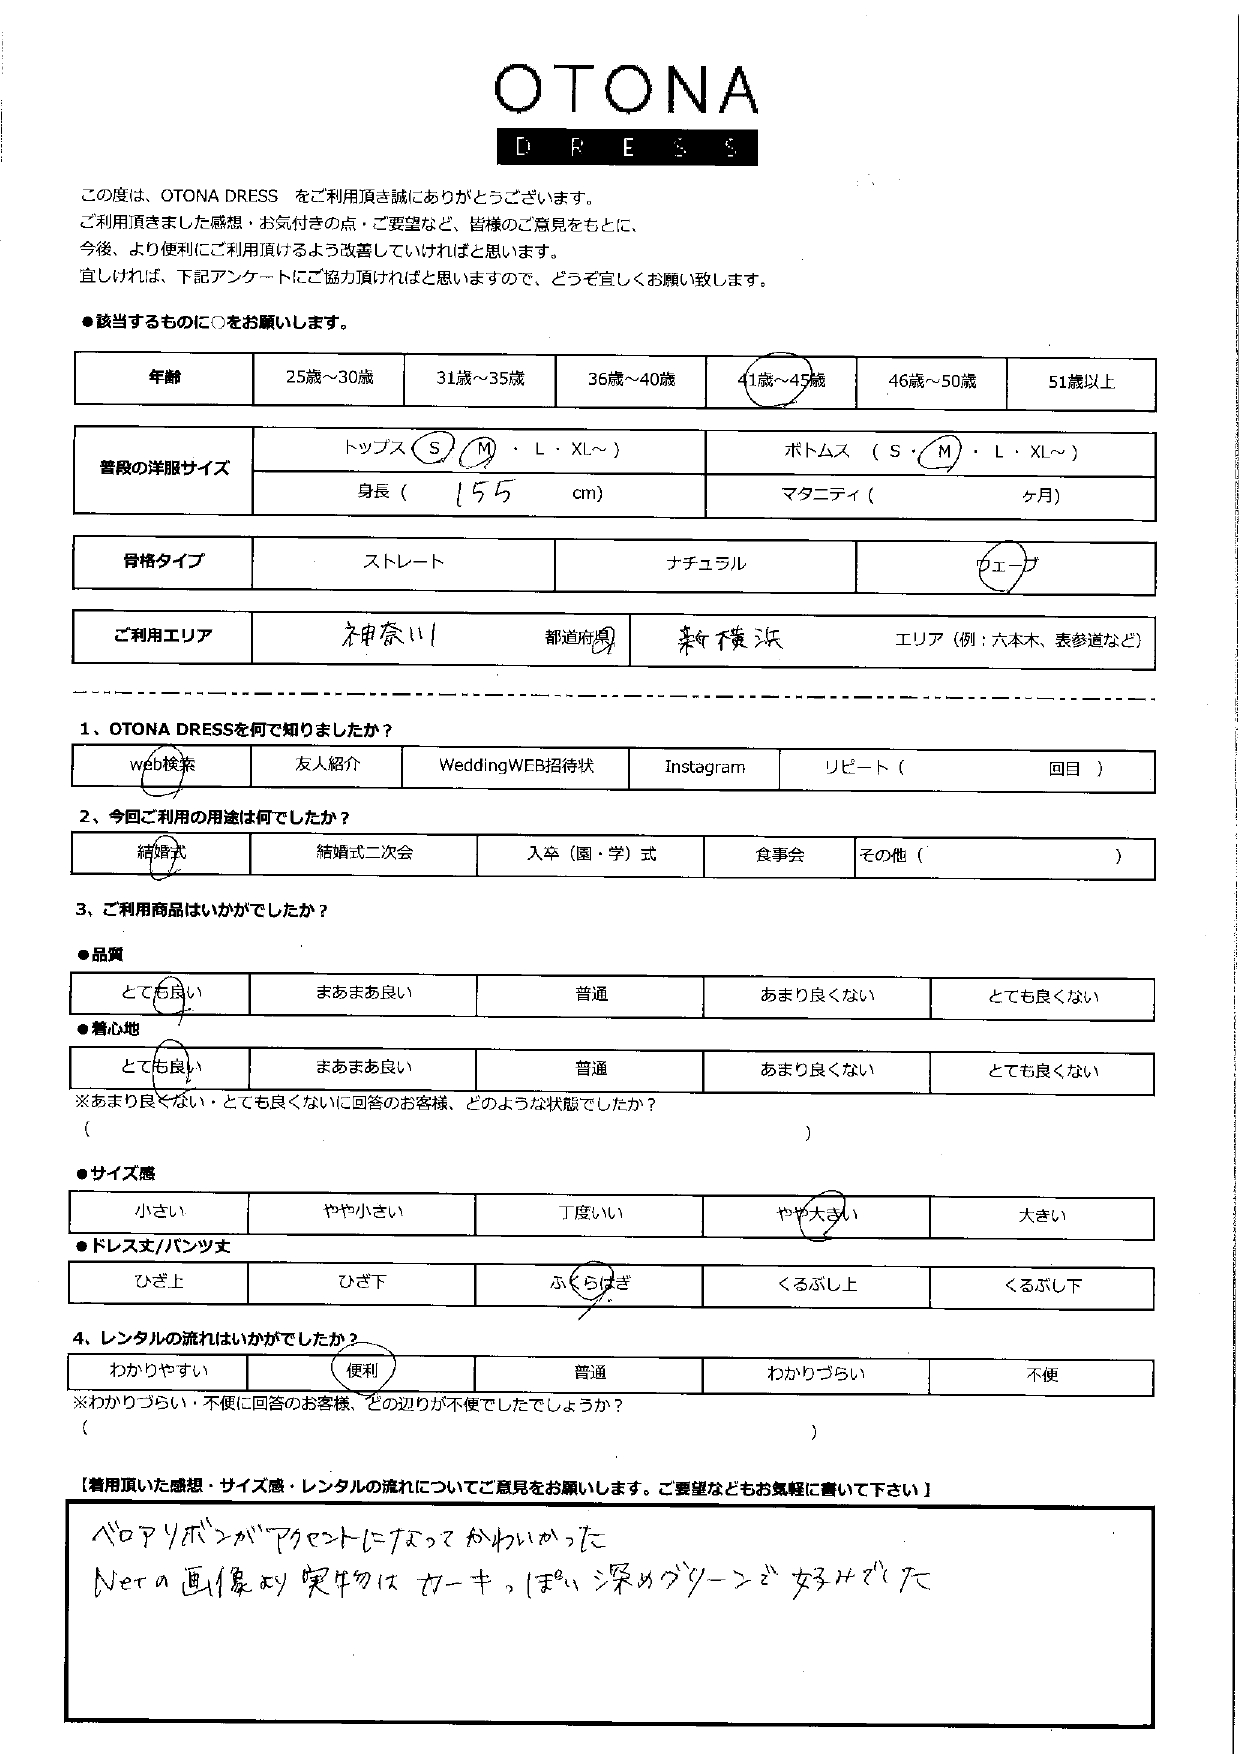 OTONA
DRESS
この度は、OTONA DRESS をご利用頂き誠にありがとうございます。
ご利用頂きました感想・お気付きの点・ご要望など、皆様のご意見をもとに、
今後、より便利にご利用頂けるよう改善していければと思います。
宜しければ、下記アンケートにご協力頂ければと思いますので、どうぞ宜しくお願い致します。
●該当するものに○をお願いします。
年齢 25歳～30歳 31歳～35歳 36歳～40歳 41歳～45歳 46歳～50歳 51歳以上
普段の洋服サイズ トップス (S・M ・ L ・ XL～ ) ボトムス ( S ・ M ・ L ・ XL～ )
身長 ( 155 cm) マタニティ ( ヶ月)
骨格タイプ ストレート ナチュラル ウェーブ
ご利用エリア 神奈川 都道府県 新横浜 エリア（例：六本木、表参道など）
1、OTONA DRESSを何で知りましたか？
web検索 友人紹介 WeddingWEB招待状 Instagram リピート ( 回目 )
2、今回ご利用の用途は何でしたか？
結婚式 結婚式二次会 入卒（園・学）式 食事会 その他 ( )
3、ご利用商品はいかがでしたか？
●品質
とても良い まあまあ良い 普通 あまり良くない とても良くない
●着心地
とても良い まあまあ良い 普通 あまり良くない とても良くない
※あまり良くない・とても良くないに回答のお客様、どのような状態でしたか？
( )
●サイズ感
小さい やや小さい 丁度いい やや大きい 大きい
●ドレス丈/パンツ丈
ひざ上 ひざ下 ふくらはぎ くるぶし上 くるぶし下
4、レンタルの流れはいかがでしたか？
わかりやすい 便利 普通 わかりづらい 不便
※わかりづらい・不便に回答のお客様、どの辺りが不便でしたでしょうか？
( )
【着用頂いた感想・サイズ感・レンタルの流れについてご意見をお願いします。ご要望などもお気軽に書いて下さい】
ベロアリボンがアクセントになってかわいかった
Netの画像より実物はカーキっぽい深めグリーンで好みでした